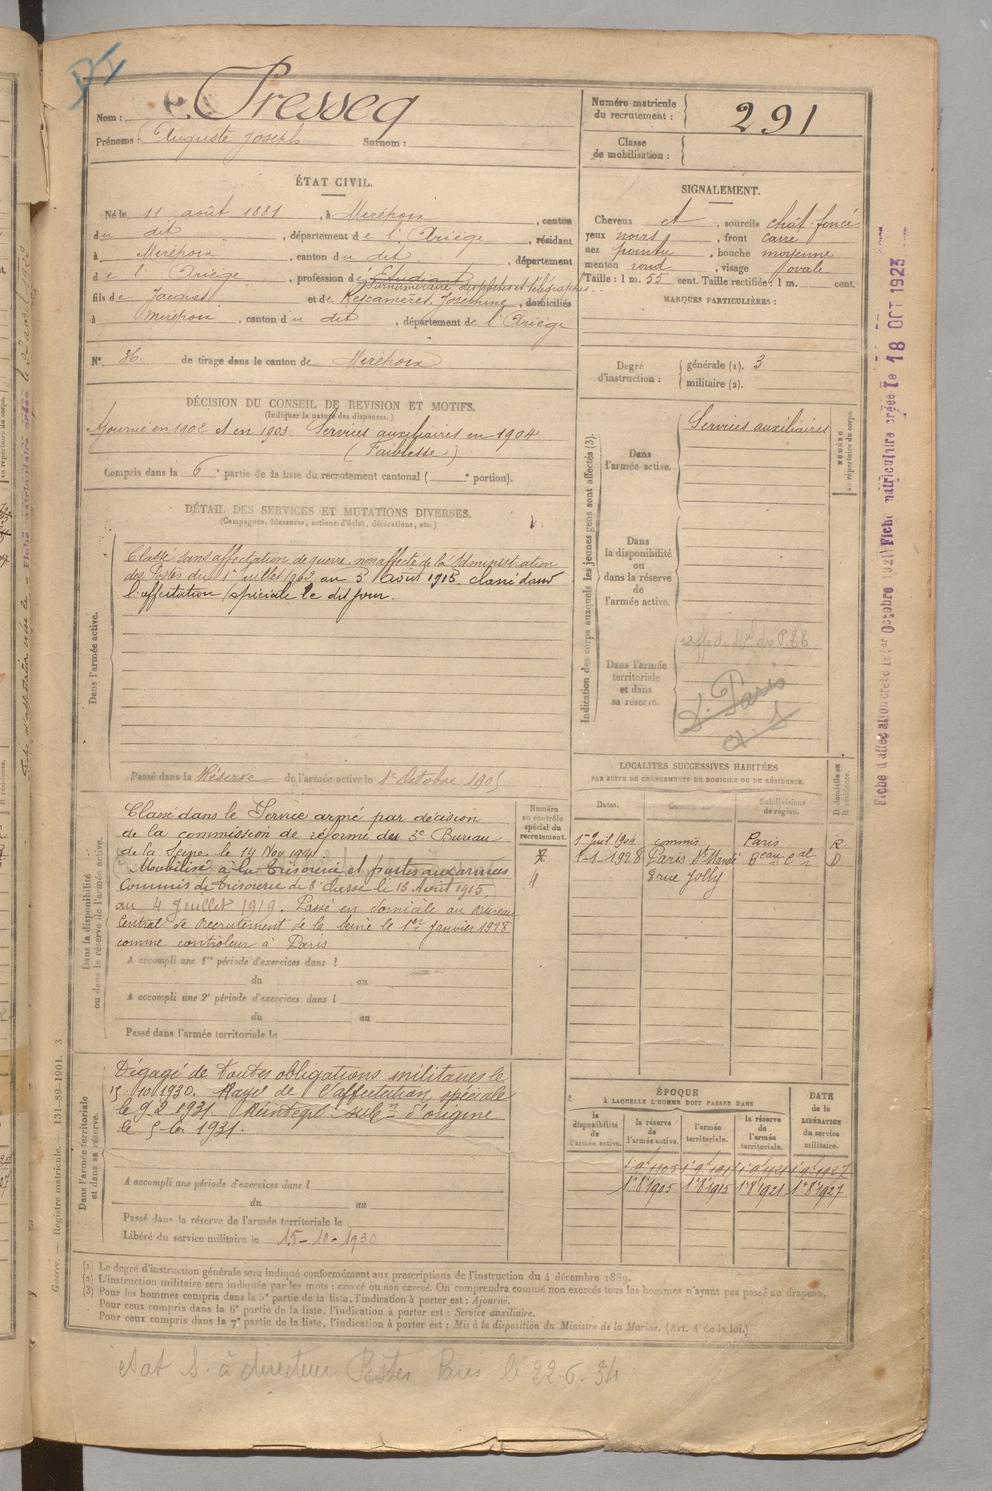 Nom : Presseq
Prénoms : Auguste Joseph Surnom :
Numéro matricule du recrutement : 291
Classe de mobilisation :
ÉTAT CIVIL.
Né le 11 août 1881, à Mirepoix, canton
du dit, département de l'Ariège, résidant
à Mirepoix, canton du dit, département
de l'Ariège, profession d'Étudiant
Surnuméraire des postes et télégraphes
fils de Jacques et de Rescanières Joséphine, domiciliés
à Mirepoix, canton du dit, département de l'Ariège
N° 36. de tirage dans le canton de Mirepoix
SIGNALEMENT.
Cheveux et, sourcils chât-foncé
yeux noirs, front carré
nez pointu, bouche moyenne
menton rond, visage ovale
Taille : 1 m. 55 cent. Taille rectifiée : 1 m. cent.
MARQUES PARTICULIÈRES :
Degré d'instruction : générale (1). 3
militaire (2).
DÉCISION DU CONSEIL DE REVISION ET MOTIFS.
(Indiquer la nature des dispenses.)
Ajourné en 1902 et en 1903. Services auxiliaires en 1904
(Faiblesse)
Compris dans la 6e partie de la liste du recrutement cantonal ( e portion).
DÉTAIL DES SERVICES ET MUTATIONS DIVERSES.
(Campagnes, blessures, actions d'éclat, décorations, etc.)
Dans l'armée active.
Classé sans affectation de guerre, non affecté de la Administration
des Postes du 1er juillet 1903 au 5 Août 1915, classé dans
l'affectation spéciale le dit jour.
Passé dans la Réserve de l'armée active le 1er Octobre 1905
Indication des corps auxquels les jeunes gens sont affectés (3).
Dans l'armée active.
Services auxiliaires
NUMÉRO au répertoire du corps.
Dans la disponibilité ou dans la réserve de l'armée active.
Dans l'armée territoriale et dans sa réserve.
Paris
Dans la disponibilité ou dans la réserve de l'armée active.
Classé dans le Service armé par décision
de la commission de réforme du 3e Bureau
de la Seine le 14 Nov 1914
Mobilisé à la trésorerie et postes aux armées
Commis de trésorerie de 3e classe le 15 Avril 1915
au 4 Juillet 1919. Passé en domicile au Bureau
Central de Recrutement de la Seine le 1er Janvier 1928
comme contrôleur à Paris
A accompli une 1re période d'exercices dans l
du au
A accompli une 2e période d'exercices dans l
du au
Passé dans l'armée territoriale le
Numéro au contrôle spécial du recrutement.
LOCALITÉS SUCCESSIVES HABITÉES
PAR SUITE DE CHANGEMENTS DE DOMICILE OU DE RÉSIDENCE.
Dates. Communes. Subdivisions de région. D domicile ou R résidence.
1er Juil 1904 commis Paris R
1-1 1928 Paris St Mandé Beau Cal D
8 rue Jolly
Dans l'armée territoriale et dans sa réserve.
Dégagé de toutes obligations militaires le
15/10/1930. Rayé de l'affectation spéciale
le 9 2 1931. Réintègre sub on d'origine
le 5-6-1931.
A accompli une période d'exercices dans l
du au
Passé dans la réserve de l'armée territoriale le
Libéré du service militaire le 15-10-1930
ÉPOQUE À LAQUELLE L'HOMME DOIT PASSER DANS
la disponibilité de l'armée active. la réserve de l'armée active. l'armée territoriale. la réserve de l'armée territoriale. DATE de la LIBÉRATION du service militaire.
1-8-1905 1-8-1915 1-8-1921 1-8-1927
(1) Le degré d'instruction générale sera indiqué conformément aux prescriptions de l'instruction du 4 décembre 1889.
(2) L'instruction militaire sera indiquée par les mots : exercé ou non exercé. On comprendra comme non exercés tous les hommes n'ayant pas passé au drapeau.
(3) Pour les hommes compris dans la 5e partie de la liste, l'indication à porter est : Ajourné.
Pour ceux compris dans la 6e partie de la liste, l'indication à porter est : Service auxiliaire.
Pour ceux compris dans la 7e partie de la liste, l'indication à porter est : Mis à la disposition du Ministre de la Marine. (Art. 4 de la loi.)
Guerre. — Registre matricule. 131-89-1901. 3
Fiche d'affectation créée le 1er Octobre 1921 Fiche matriculaire créée le 18 OCT 1923
état S. à directeur Postes Paris le 22-6-34